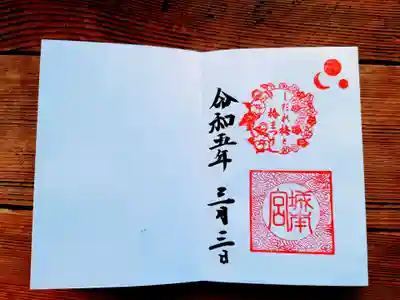 しだれ梅と
椿まつり
城南宮
令和五年 三月三日